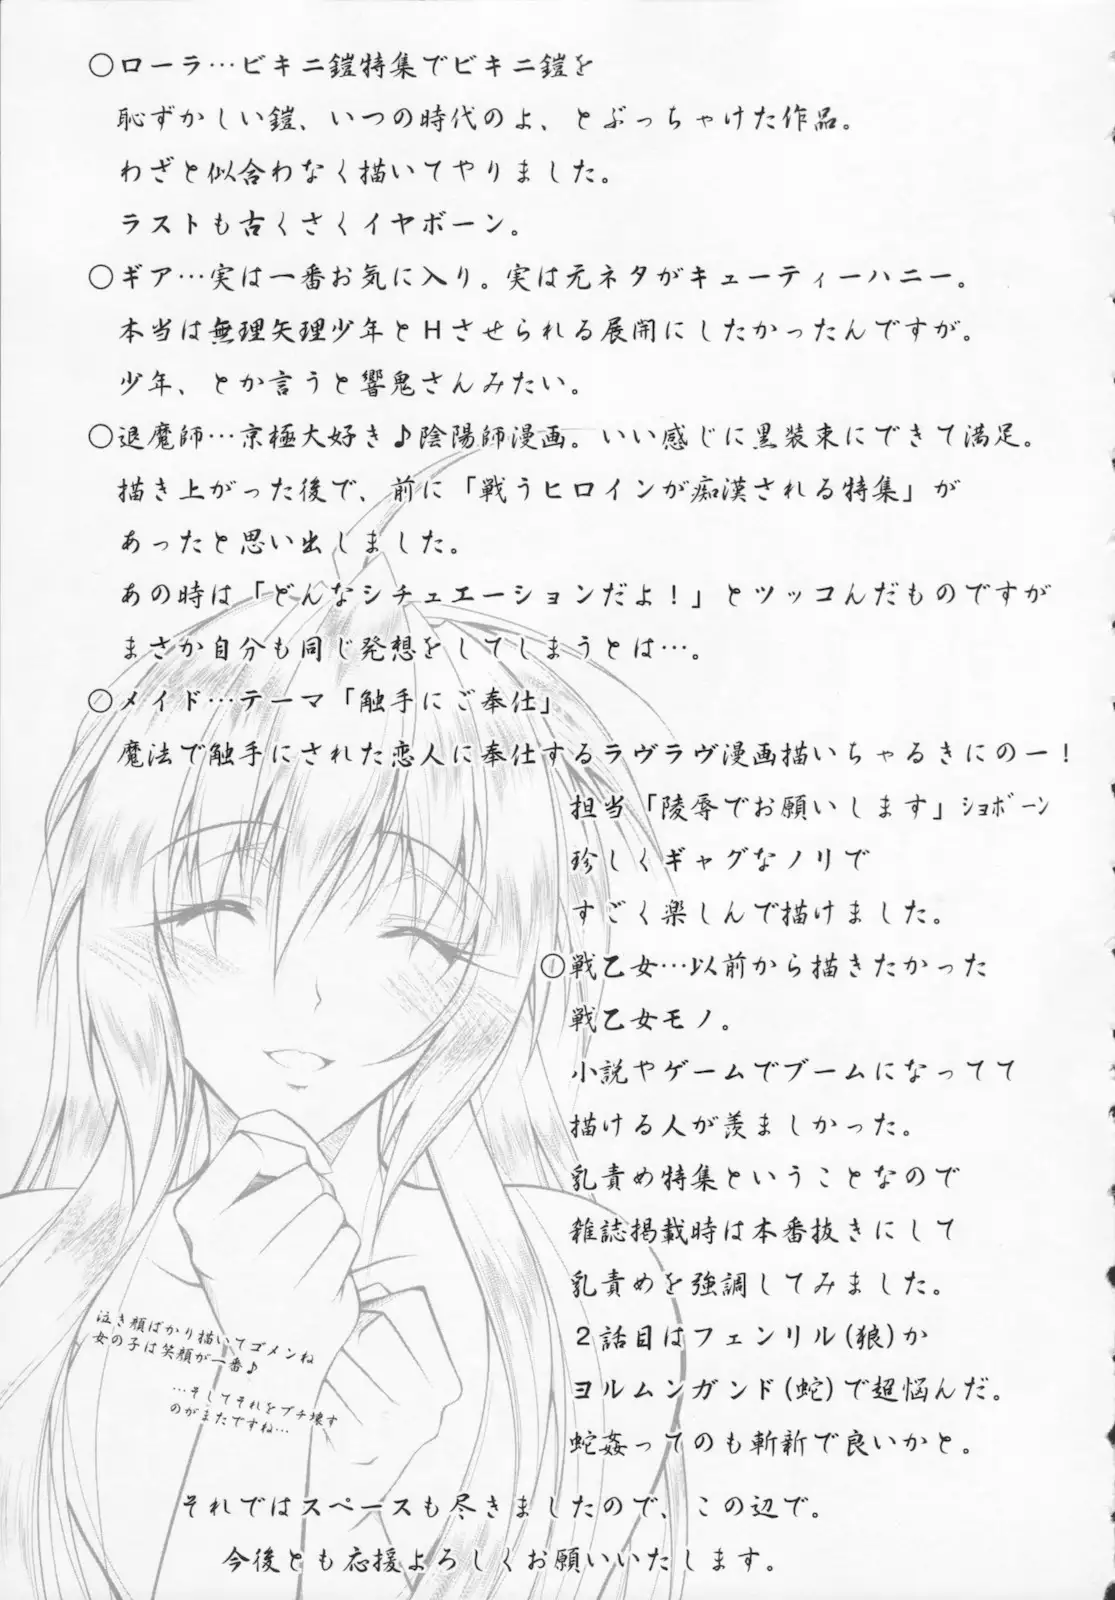 ○ローラ…ビキニ鎧特集でビキニ鎧を
恥ずかしい鎧、いつの時代のよ、とぶっちゃけた作品。
わざと似合わなく描いてやりました。
ラストも古くさくイヤボーン。
○ギア…実は一番お気に入り。実は元ネタがキューティーハニー。
本当は無理矢理少年とHさせられる展開にしたかったんですが。
少年、とか言うと響鬼さんみたい。
○退魔師…京極大好き♪陰陽師漫画。いい感じに黒装束にできて満足。
描き上がった後で、前に「戦うヒロインが痴漢される特集」が
あったと思い出しました。
あの時は「どんなシチュエーションだよ！」とツッコんだものですが
まさか自分も同じ発想をしてしまうとは…。
○メイド…テーマ「触手にご奉仕」
魔法で触手にされた恋人に奉仕するラヴラヴ漫画描いちゃるきにのー！
担当「陵辱でお願いします」ｼｮﾎﾞｰﾝ
珍しくギャグなノリで
すごく楽しんで描けました。
○戦乙女…以前から描きたかった
戦乙女モノ。
小説やゲームでブームになってて
描ける人が羨ましかった。
乳責め特集ということなので
雑誌掲載時は本番抜きにして
乳責めを強調してみました。
２話目はフェンリル(狼)か
ヨルムンガンド(蛇)で超悩んだ。
蛇姦ってのも斬新で良いかと。
泣き顔ばかり描いてゴメンね
女の子は笑顔が一番♪
…そしてそれをブチ壊す
のがまたですね…
それではスペースも尽きましたので、この辺で。
今後とも応援よろしくお願いいたします。